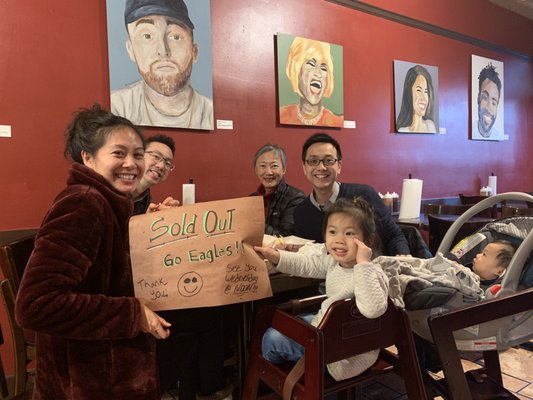 Sold Out
Go Eagles!!
Thank you
See You
Wednesday
@ Noon